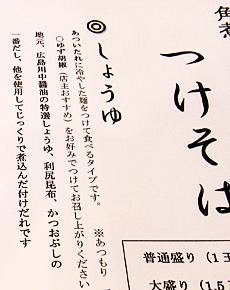 角煮
つけそば
◎しょうゆ
あついたれに冷やした麺をつけて食べるタイプです。
○ゆず胡椒(店主おすすめ)をお好みでつけてお召し上がりください
※あつもり
地元、広島川中醤油の特選しょうゆ、利尻昆布、かつおぶしの
一番だし、他を使用してじっくりで煮込んだ付けだれです
普通盛り(1玉
大盛り(1.5